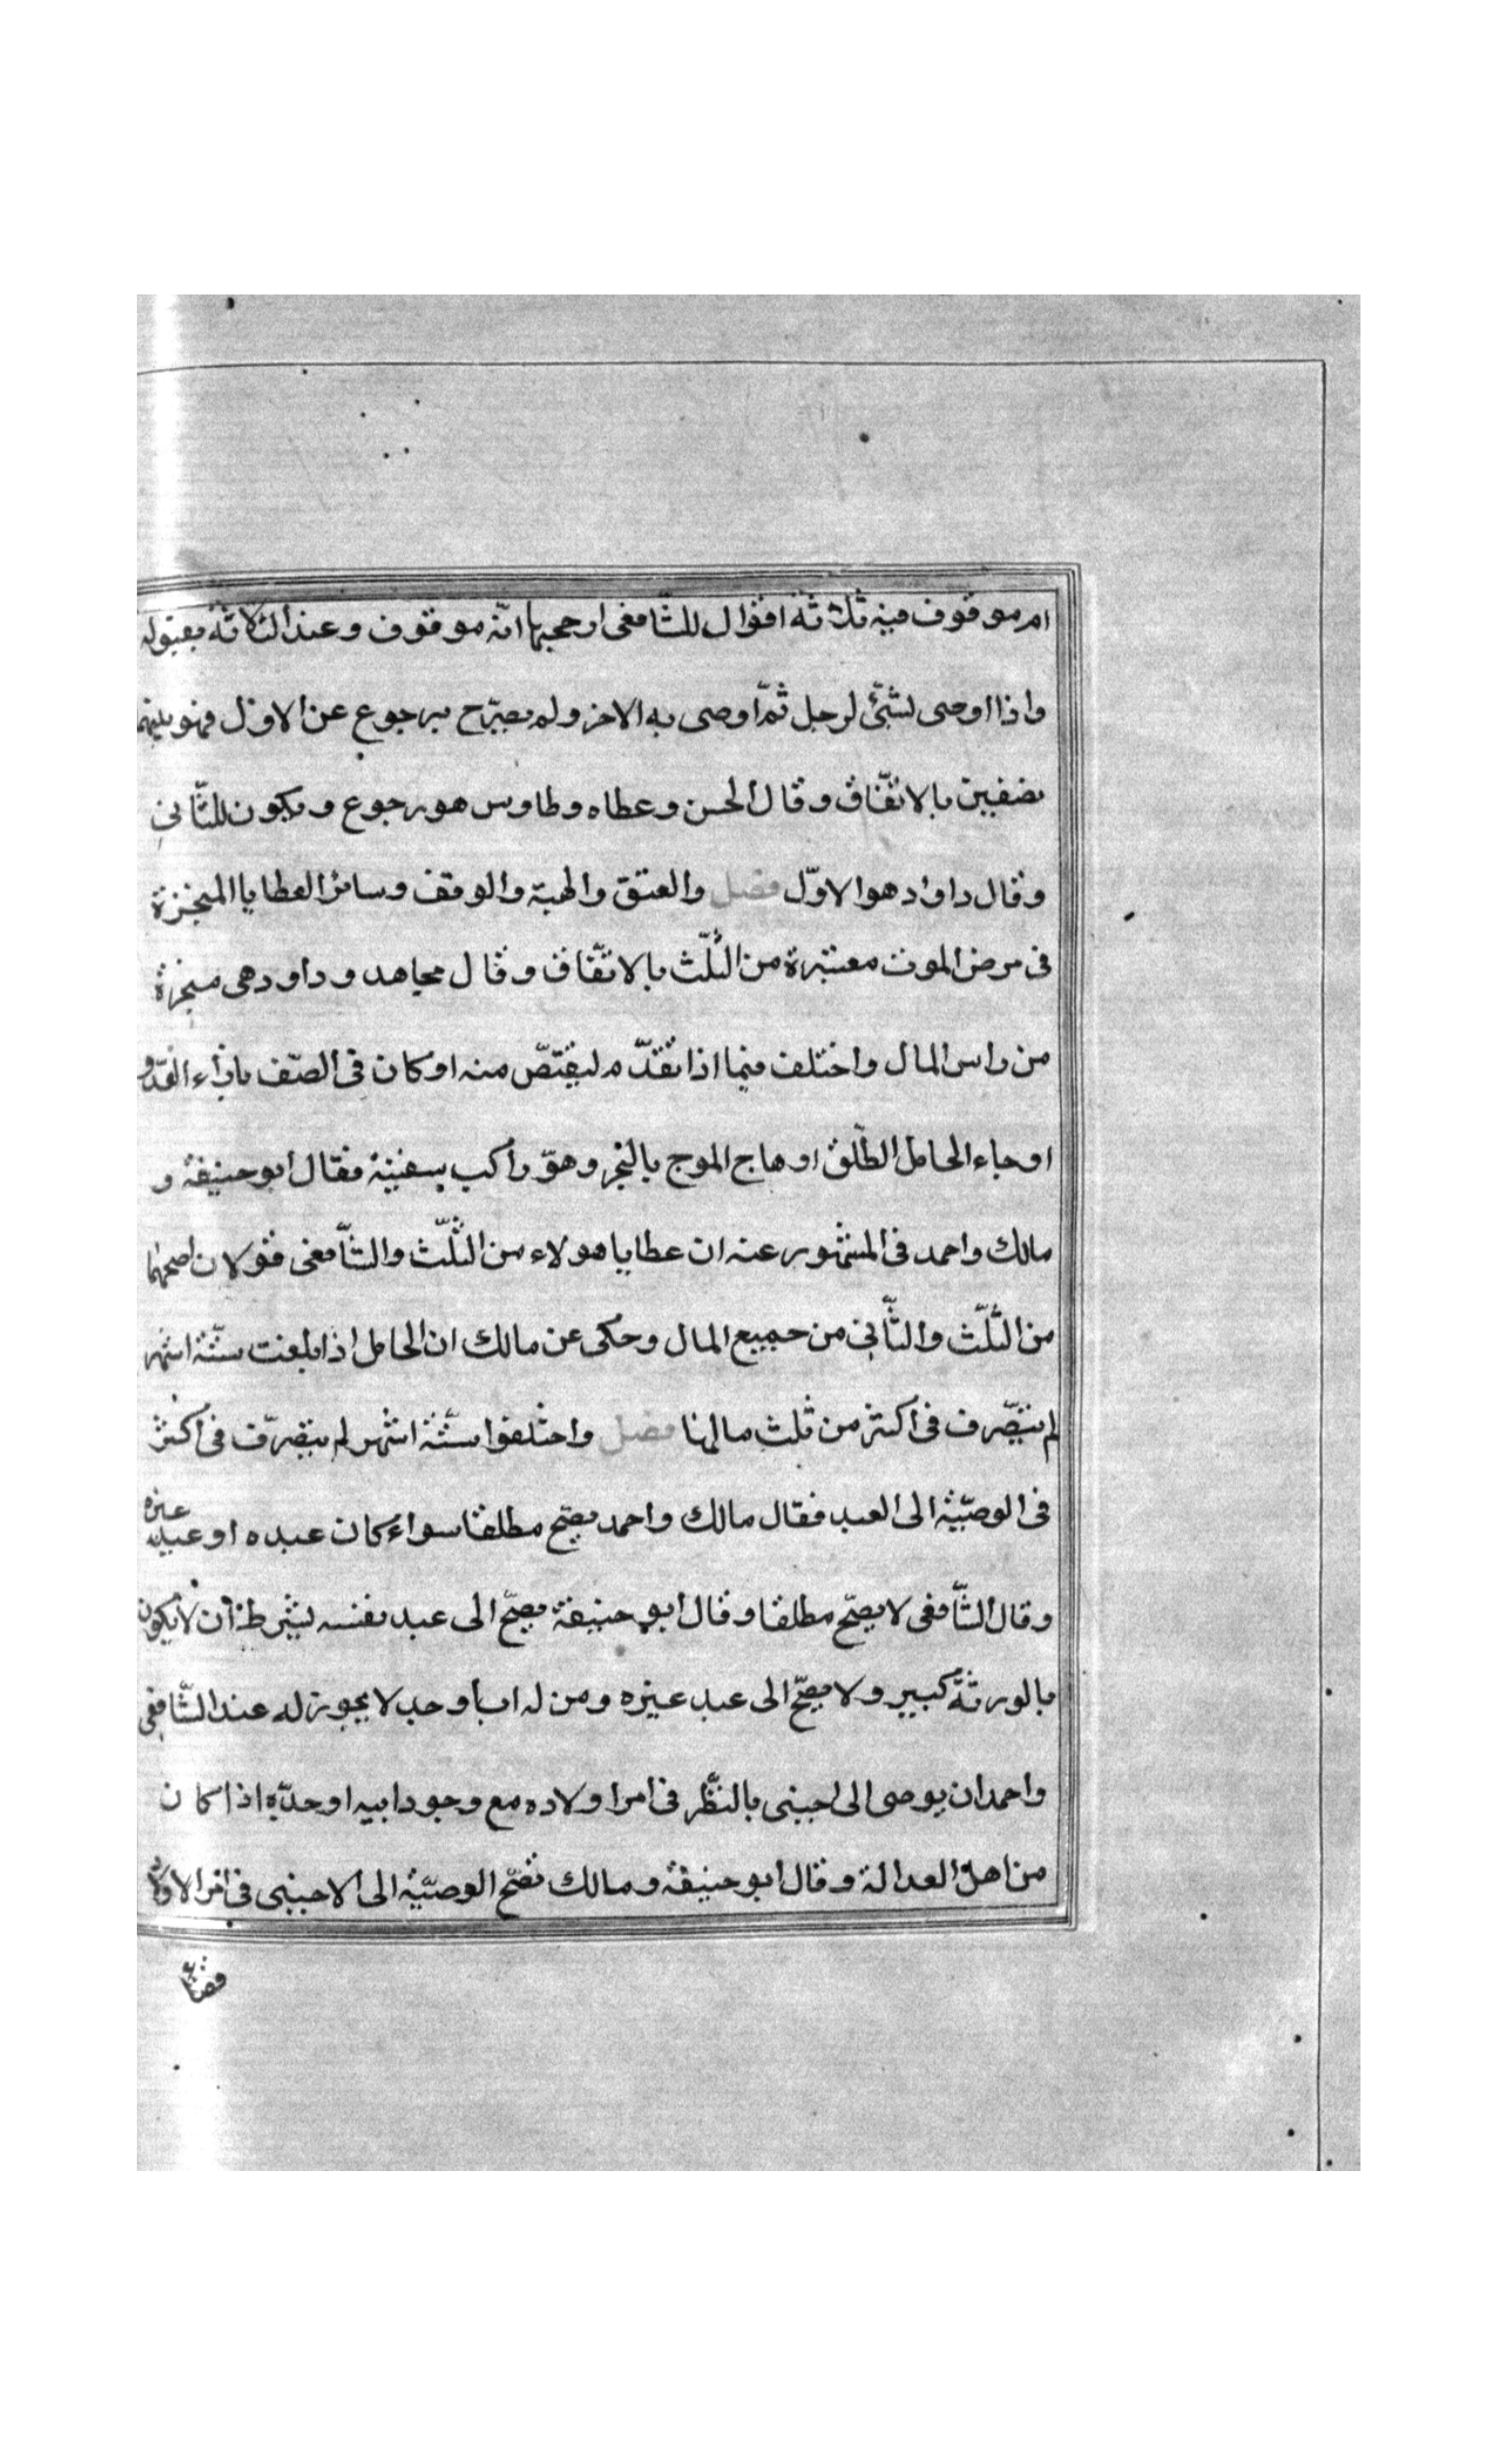 ام موقوف فيه ثلاثة اقوال للشّافعى ارجحها انّه موقوف وعند الثلاثة بقبوله
واذا اوصى لشئ لرجل ثمّ اوصى به الاخر ولم يصرّح برجوع عن الاوّل فهو بينهما
نصفين بالاتّفاق وقال الحسن وعطاه وطاوس هو رجوع ويكون للثّانى
وقال داود هو الاوّل فصل والعتق والهبة والوقف وسائر العطايا المنجزة
فى مرض الموت معتبرة من الثّلث بالاتّفاق وقال مجاهد وداود هى منجزة
من راس المال واختلف فيما اذا تقدّم ليقتصّ منه او كان فى الصّف باذاء العدّو
او جاء الحامل الطّلق او هاج الموج بالبحر وهو راكب سفينة فقال ابو حنيفة و
مالك واحمد فى المشهور عنه ان عطايا هولاء من الثّلث والشّافعى قولان اصحهما
من الثّلث والثّانى من جميع المال وحكى عن مالك ان الحامل اذا بلغت ستّة اشهر
لم يتصّرف فى اكثر من ثلث مالها فصل واختلفوا ستّة اشهر لم يتصّرف فى اكثر
فى الوصيّة الى العبد فقال مالك واحمد يصح مطلقا سواء كان عبده او عبد غيره
وقال الشّافعى لا يصحّ مطلقا وقال ابو حنيفة يصحّ الى عبد نفسه بشرط ان لا يكون
بالورثة كبير ولا يصحّ الى عبد غيره ومن له اب او جد لا يجوز له عند الشّافعى
واحمد ان يوصى الى اجنبى بالنّظر فى امر اولاده مع وجود ابيه او جدّه اذا كان
من اهل العدالة وقال ابو حنيفة ومالك تصّح الوصيّة الى الاجنبى فى امر الاولاد